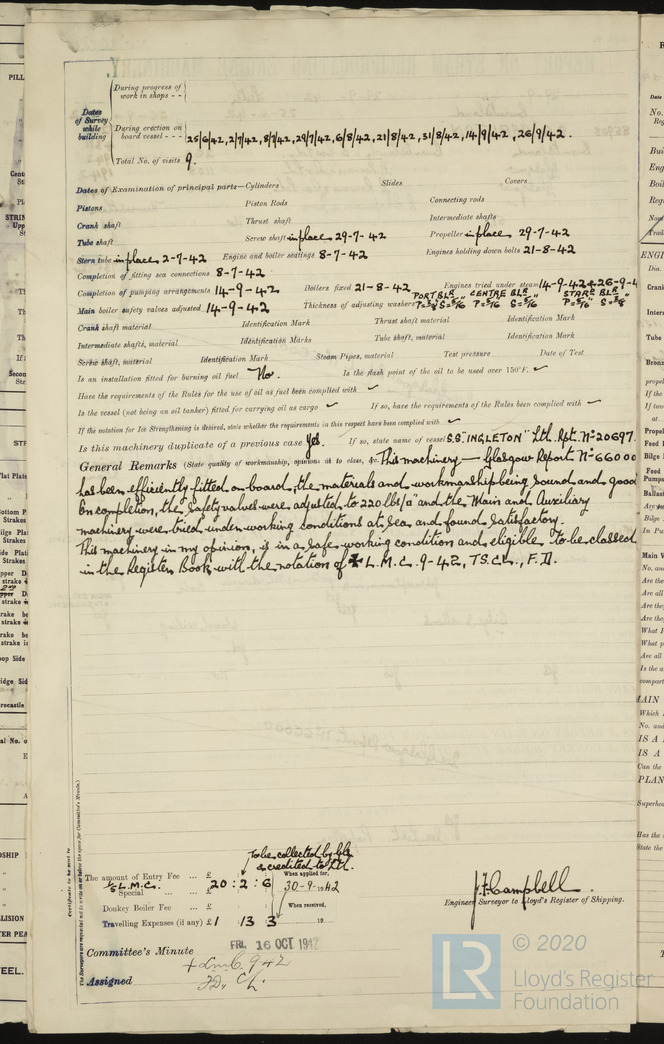 During progress of
work in shops - -
Dates
of Survey
while
building
During erection on
board vessel - - -
25/6/42, 2/7/42, 8/7/42, 29/7/42, 6/8/42, 21/8/42, 31/8/42, 14/9/42, 26/9/42.
Total No. of visits 9.
Dates of Examination of principal parts—Cylinders Slides Covers
Pistons Piston Rods Connecting rods
Crank shaft Thrust shaft Intermediate shafts
Tube shaft Screw shaft in place 29-7-42 Propeller in place 29-7-42
Stern tube in place 2-7-42 Engine and boiler seatings 8-7-42 Engines holding down bolts 21-8-42
Completion of fitting sea connections 8-7-42
Completion of pumping arrangements 14-9-42 Boilers fixed 21-8-42 Engines tried under steam 14-9-42 & 26-9-4
Main boiler safety valves adjusted 14-9-42 Thickness of adjusting washers PORT BLR CENTRE BLR STARB BLR
Crank shaft material Identification Mark Thrust shaft material Identification Mark
Intermediate shafts, material Identification Marks Tube shaft, material Identification Mark
Screw shaft, material Identification Mark Steam Pipes, material Test pressure Date of Test
Is an installation fitted for burning oil fuel No. Is the flash point of the oil to be used over 150°F. ✓
Have the requirements of the Rules for the use of oil as fuel been complied with ✓
Is the vessel (not being an oil tanker) fitted for carrying oil as cargo ✓ If so, have the requirements of the Rules been complied with ✓
If the notation for Ice Strengthening is desired, state whether the requirements in this respect have been complied with ✓
Is this machinery duplicate of a previous case Yes. If so, state name of vessel S.S. "INGLETON" Lth. Rpt. No 20697.
General Remarks (State quality of workmanship, opinions as to class, &c. This machinery — Glasgow Report No 66000
has been efficiently fitted on board, the materials and workmanship being sound and good
On completion, the safety valves were adjusted to 220 lbs/□" and the Main and Auxiliary
machinery were tried under working conditions at sea and found satisfactory.
This machinery in my opinion, is in a safe working condition and eligible to be classed
in the Register Book with the notation of ✠ L.M.C. 9-42, T.S.CL., F.D.
Certificate to be sent to
The Surveyors are requested not to write on or below the space for Committee's Minute.
To be collected by Gls
& credited to Lth.
The amount of Entry Fee ... £ When applied for,
L.M.C. Special ... ... £ 20 : 2 : 6 30-9-1942
Donkey Boiler Fee ... £ When received,
Travelling Expenses (if any) £ 1 13 3 19
J.F. Campbell.
Engineer Surveyor to Lloyd's Register of Shipping.
Committee's Minute FRI. 16 OCT 1942
Assigned + Lmc 9 42
FD. CL.
LR
© 2020
Lloyd's Register
Foundation